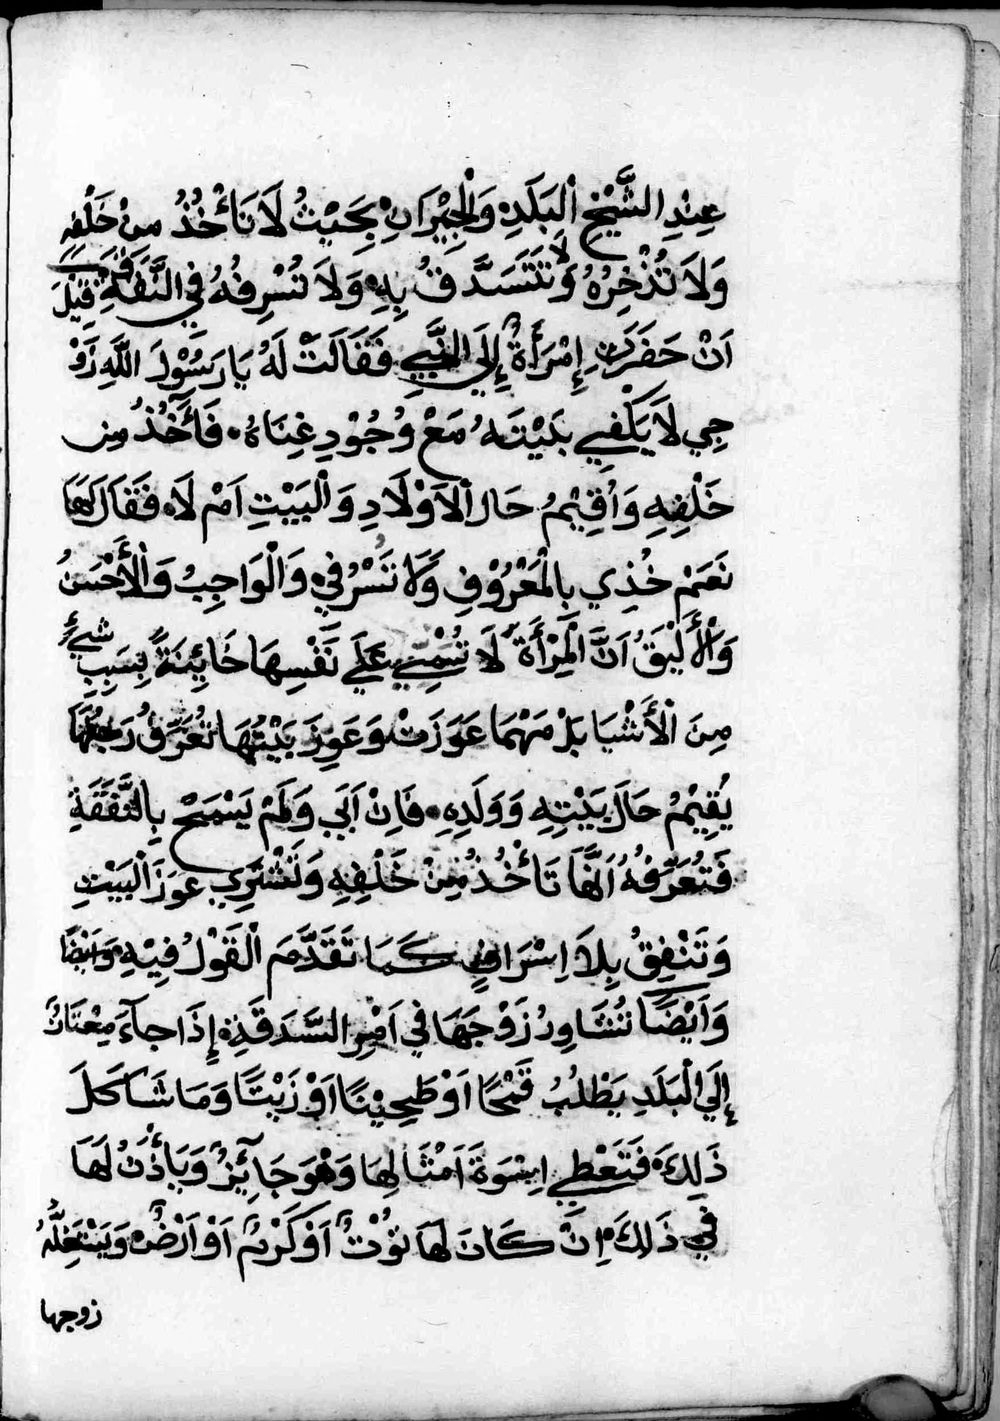 عِنْدِ الشَّيْخِ الْبَلَدِ وَالْجِيْرَانِ بِحَيْثُ لَا تَأْخُذُ مِنْ خَلْفِهِ
وَلَا تُذْخِرُهُ وَلَا تَتَسَدَّقُ بِهِ وَلَا تُسْرِفُهُ فِي النَّفَقَةِ قِيْلَ
اَنْ حَضَرَتِ إِمْرَأَةٌ إِلَى النَّبِيِ فَقَالَتْ لَهُ يَا رَسُوْلَ اللَّهِ زَوْ
جِي لَا يَكْفِي بَيْتَهُ مَعْ وُجُوْدِ غِنَاهُ فَأَخُذُ مِن
خَلْفِهِ وَاُقِيْمُ حَالَ الْاَوْلَادِ وَالْبَيْتِ اَمْ لَا فَقَالَ لَهَا
نَعَمْ خُذِي بِالْمَعْرُوْفِ وَلَا تَسْرُفِي وَالْوَاجِبُ وَالْأَحْسَنُ
وَالْأَلْيَقُ اَنَّ الْمَرْأَةَ لَا تُمْسِي عَلَى نَفْسِهَا خَائِنَةً بِسَبَبِ شَيْءٍ
مِنَ الْأَشْيَا بَلْ مَهْمَا عَوَزَتْ وَعَوِزَ بَيْتُهَا تُعَرِّفُ رَجُلَهَا
يُقِيْمُ حَالَ بَيْتِهِ وَوَلَدِهِ فَاِنْ اَبَى وَلَمْ يَسْمَحْ بِالنَّفَقَةِ
فَتُعَرِّفُهُ اَنَّهَا تَأْخُذُ مِنْ خَلْفِهِ وَتَشْتَرِي عَوَزَ الْبَيْتِ
وَتَنْفِقُ بِلَا اِسْرَافٍ كَمَا تَقَدَّمَ الْقَوْلُ فِيْهِ وَاَيْضًا
وَاَيْضًا تُشَاوِرُ زَوْجَهَا فِي اَمْرِ السَّدَقَةِ إِذَا جَآءَ مِعْتَازٌ
إِلَى الْبَلَدِ يَطْلُبُ قَمْحًا اَوْ طَحِيْنًا اَوْ زَيْتًا وَمَا شَاكَلَ
ذَلِكَ فَتَعْطِي اِسْوَةَ اَمْثَالِهَا وَهْوَ جَآئِزٌ وَيَأْذَنُ لَهَا
فِي ذَلِكَ اِنْ كَانَ لَهَا تُوْتٌ اَوْ كَرْمٌ اَوْ اَرْضٌ وَيَسْتَغِلُّهُ
زوجها